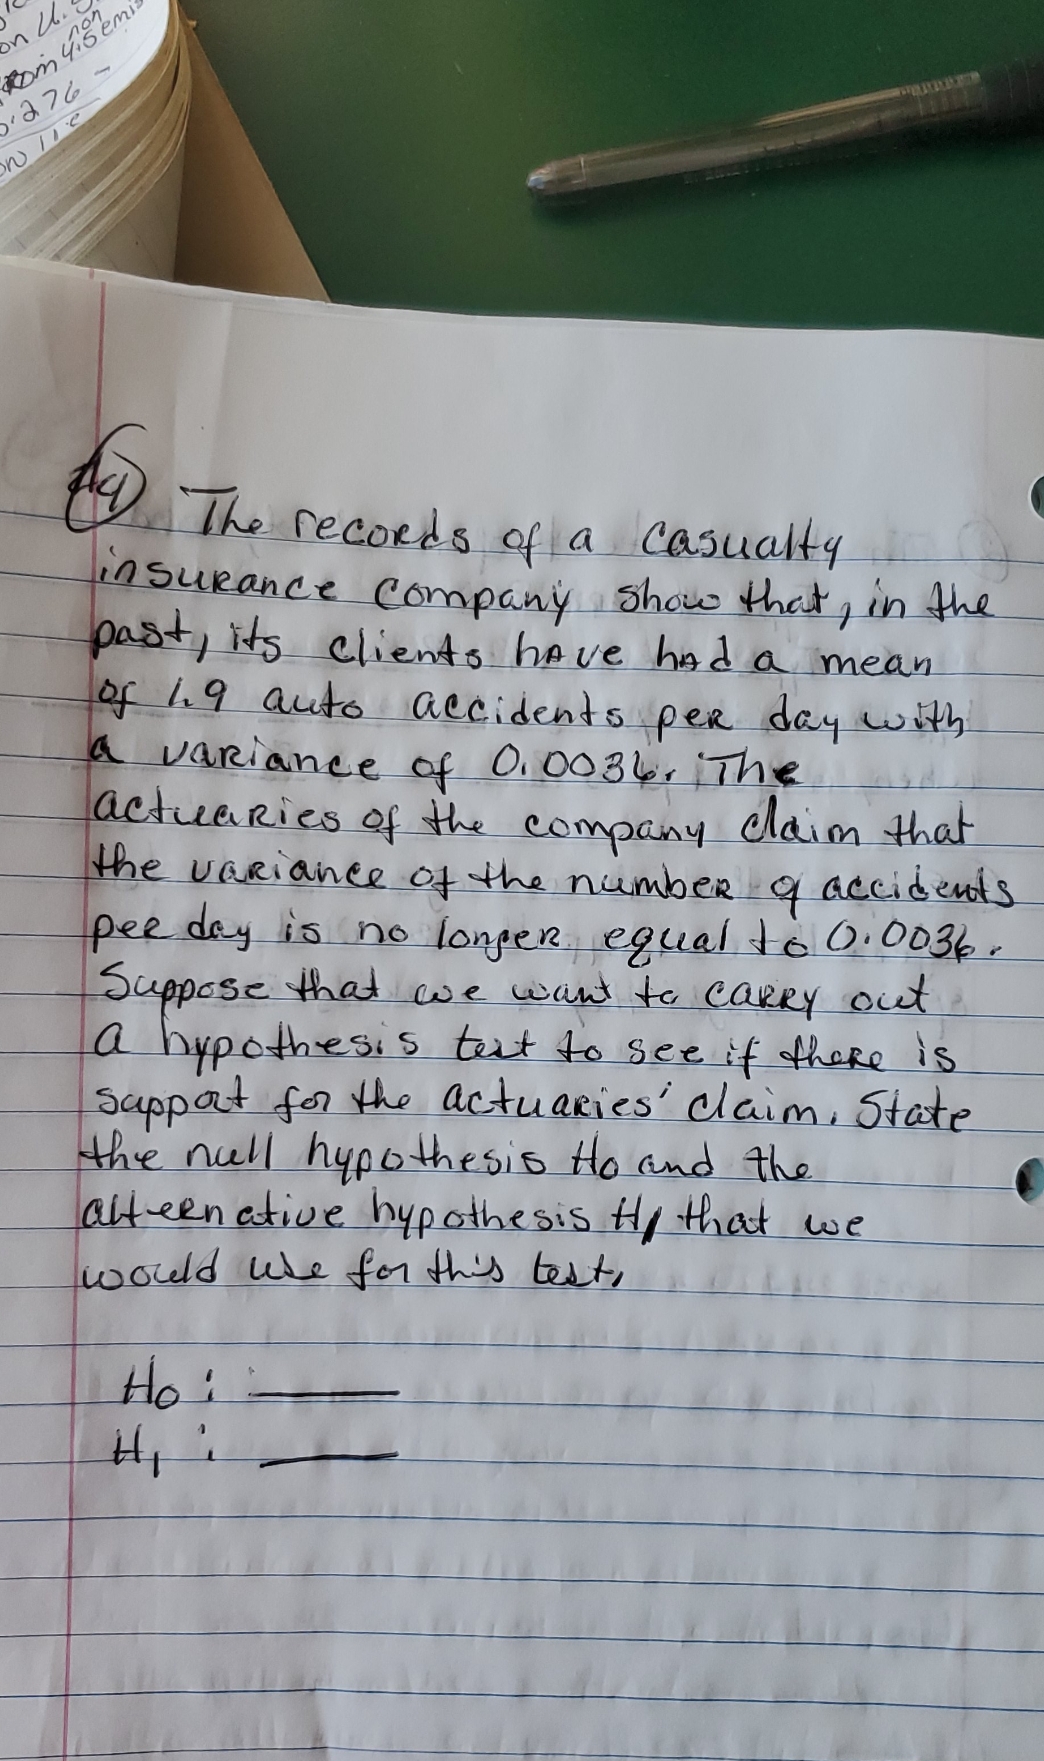 on U.S
non
from 4.5 emis
0.276 -
A9) The records of a casualty
insurance company show that, in the
past, its clients have had a mean
of 1.9 auto accidents per day with
a variance of 0.0036. The
actuaries of the company claim that
the variance of the number of accidents
per day is no longer equal to 0.0036.
Suppose that we want to carry out
a hypothesis test to see if there is
support for the actuaries' claim. State
the null hypothesis Ho and the
alternative hypothesis H1 that we
would use for this test.
Ho :
H1 :